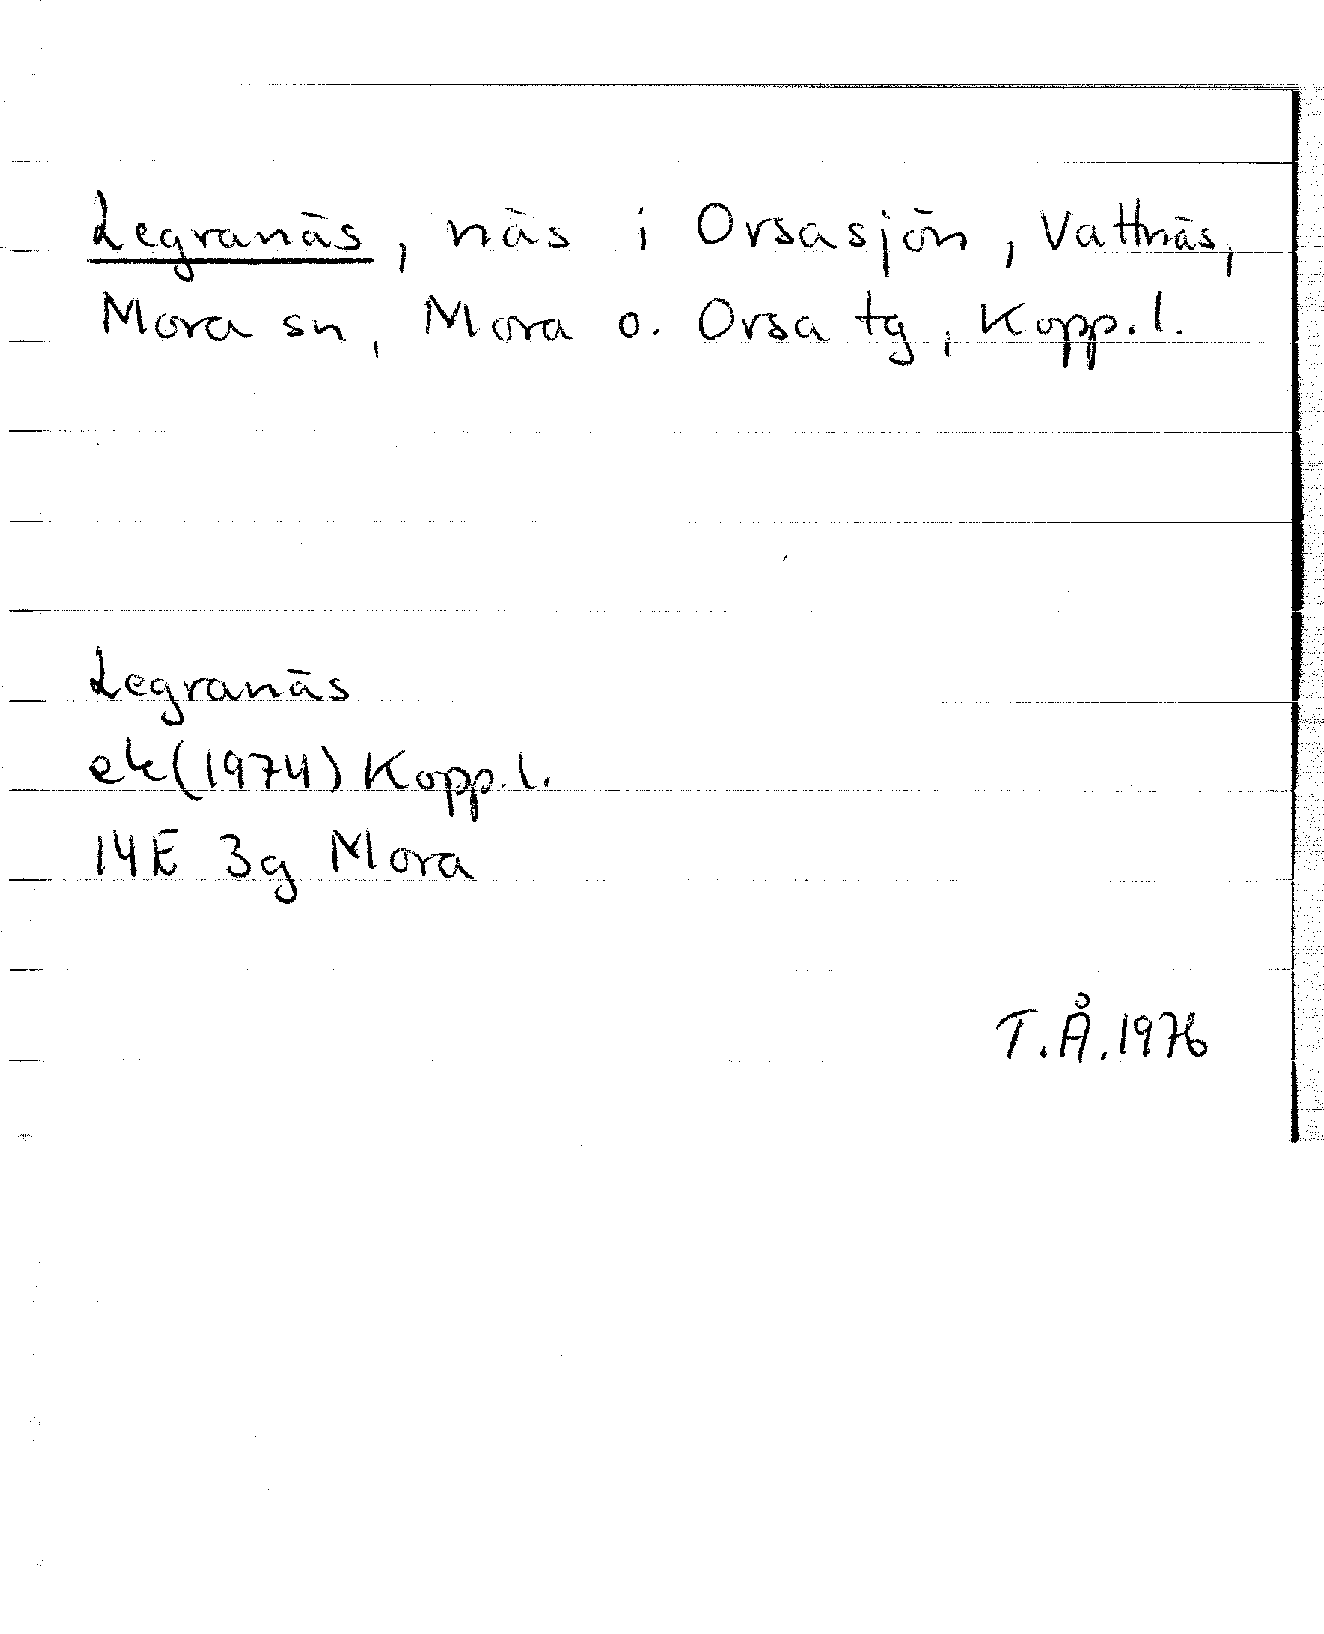 Legranäs, näs i Orsasjön, Vattnäs,
Mora sn, Mora o. Orsa tg, Kopp.l.
Legranäs
ek(1974) Kopp.l.
14E 3g Mora
T.Å.1976